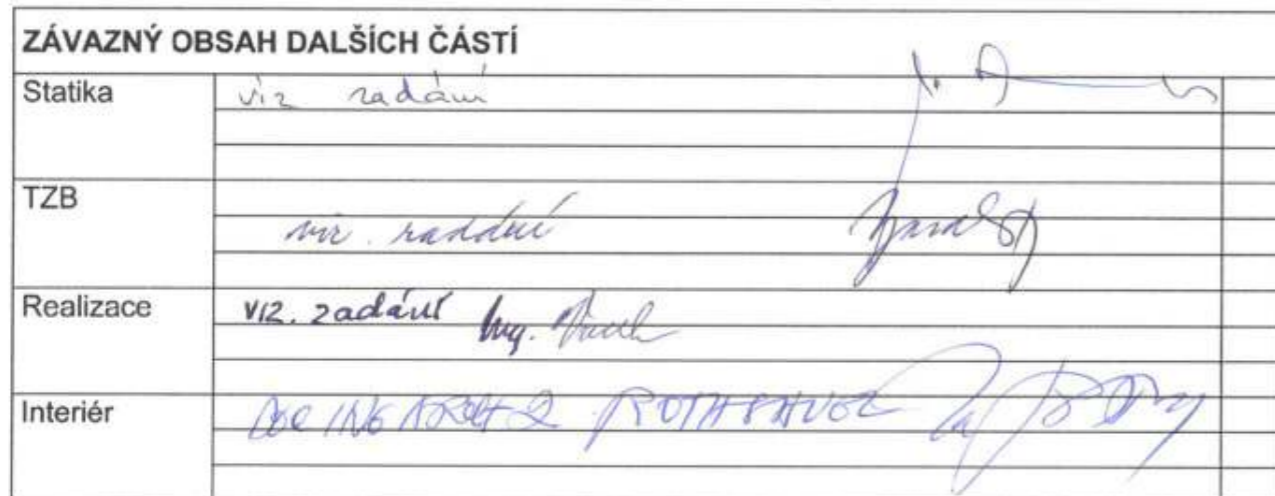 ZÁVAZNÝ OBSAH DALŠÍCH ČÁSTÍ
Statika viz zadání
TZB viz. zadání
Realizace viz. zadání Ing.
Interiér DOC ING ARCH